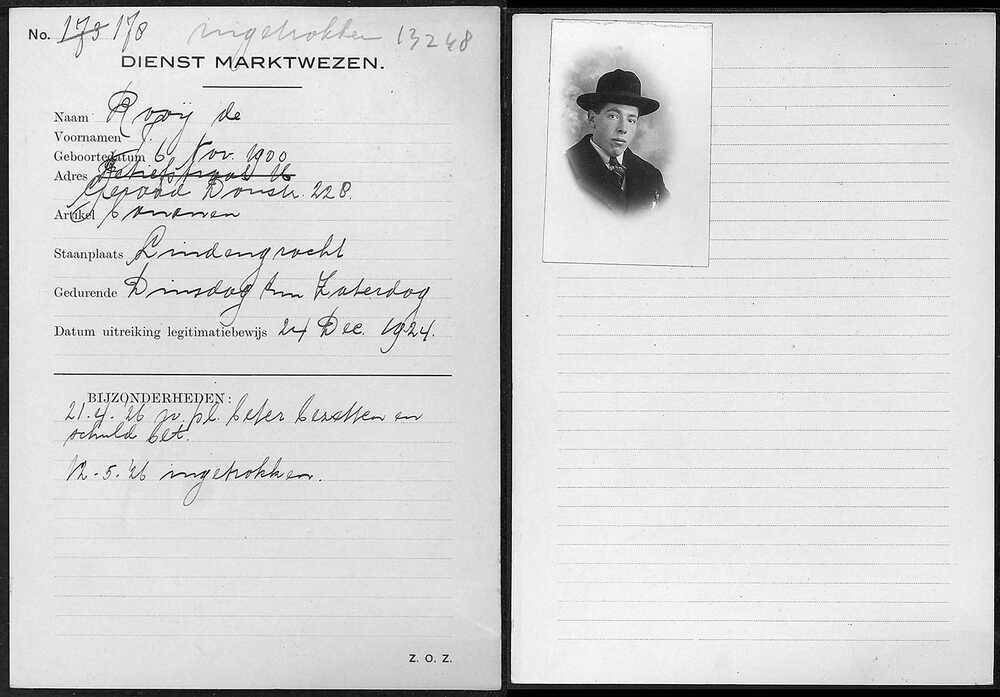 No. 173 178 ingetrokken 13248
DIENST MARKTWEZEN.
Naam Rooij de
Voornamen J.
Geboortedatum 6 Nov. 1900
Adres
Gerard Doustr. 228.
Artikel bananen
Staanplaats Lindengracht
Gedurende Dinsdag t/m Zaterdag
Datum uitreiking legitimatiebewijs 24 Dec. 1924.
BIJZONDERHEDEN:
21.4.'26 pl. beter bezetten en
schuld bet.
12-5.'26 ingetrokken.
Z. O. Z.